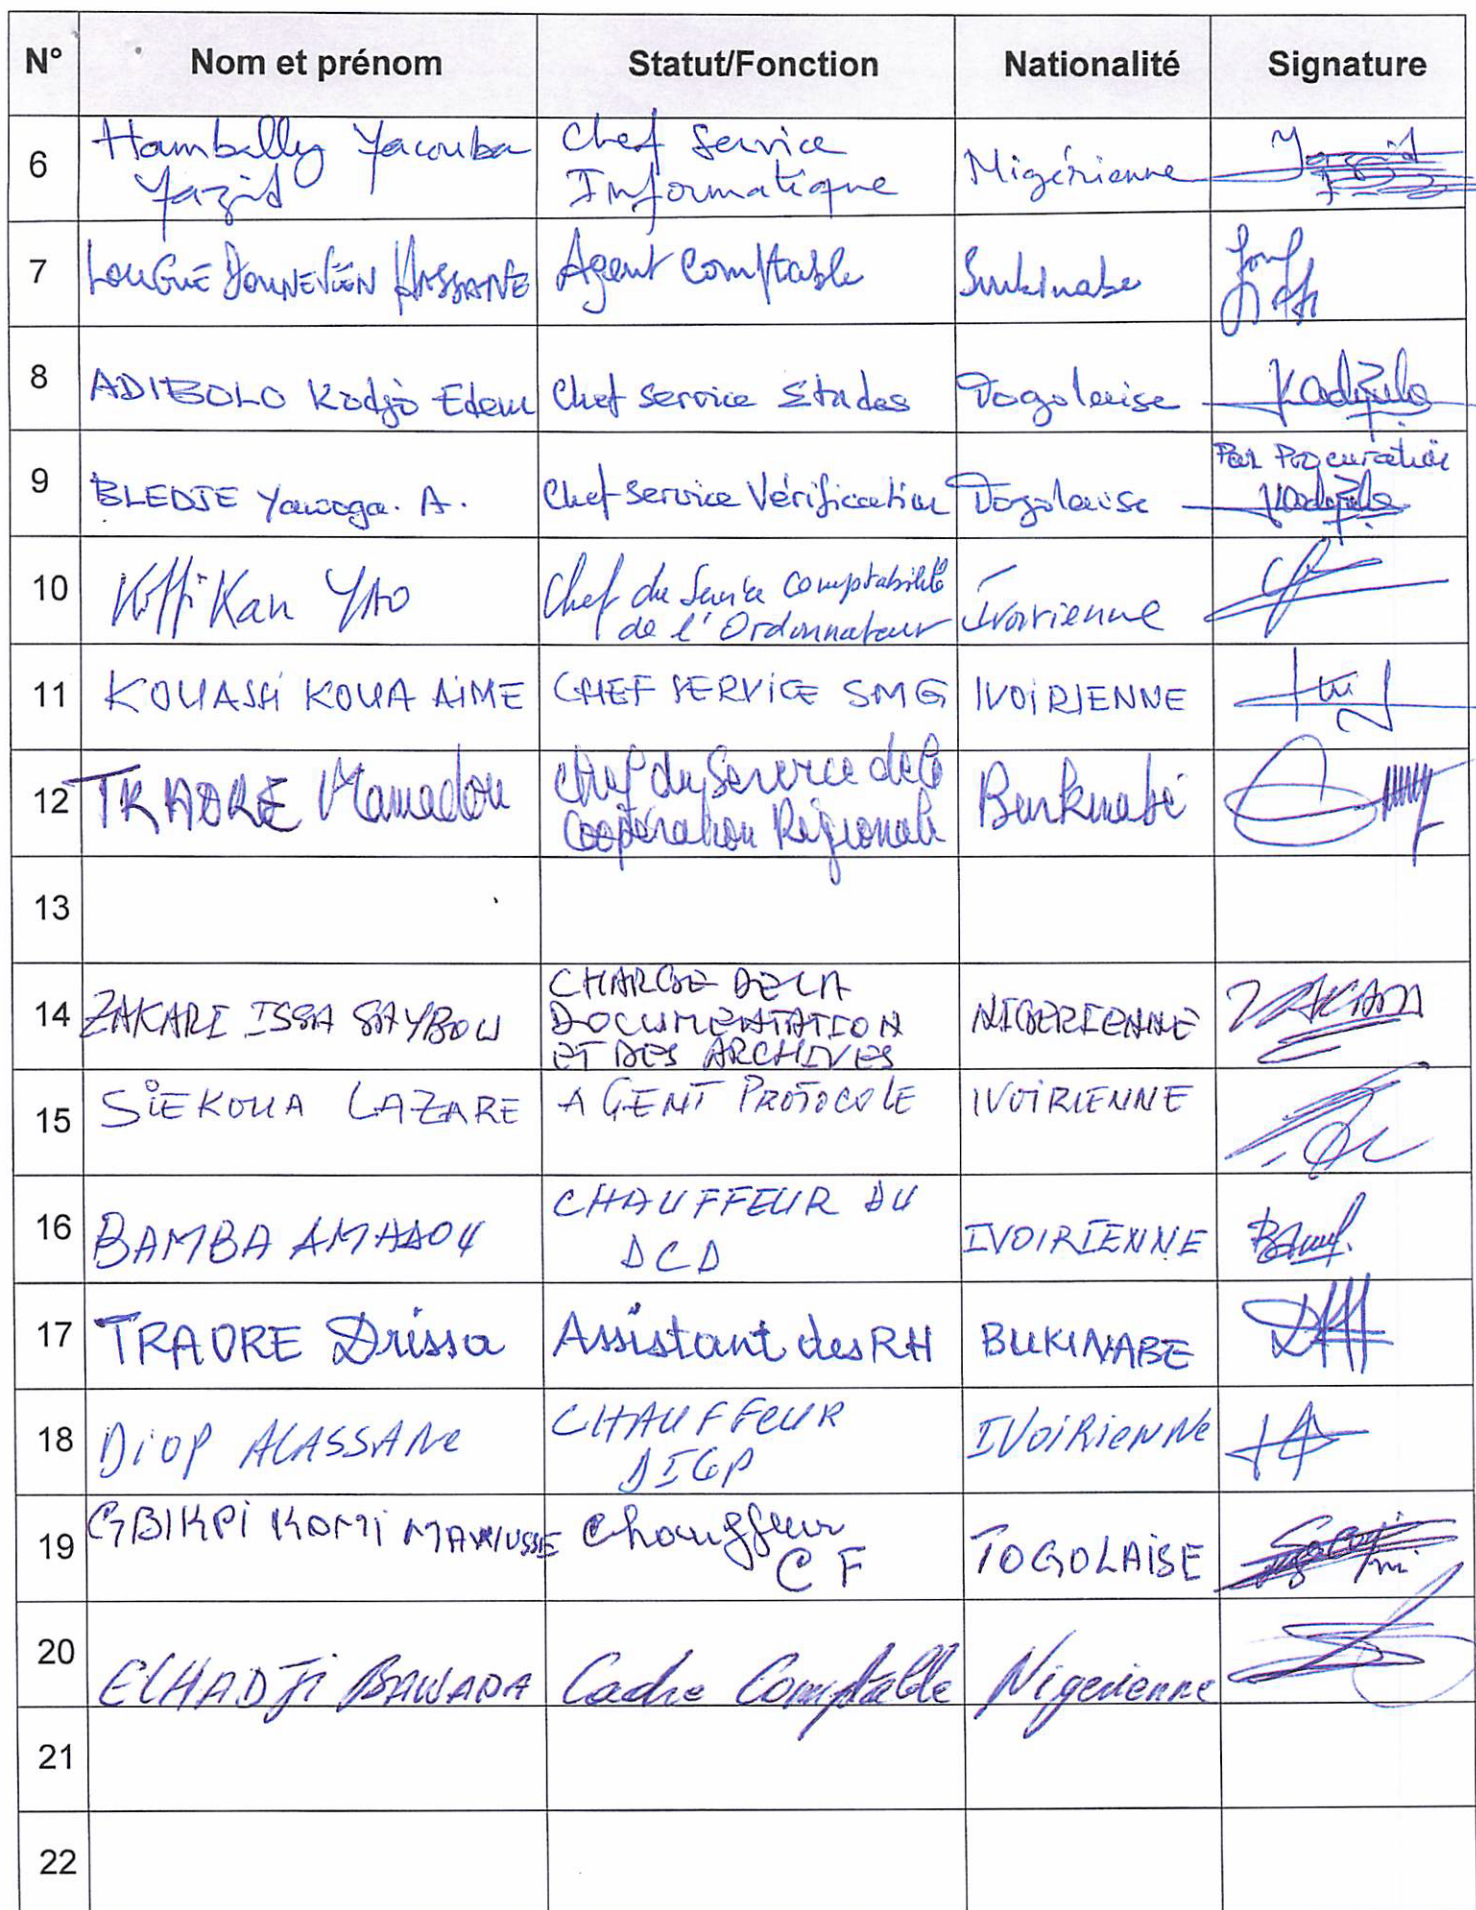 N° Nom et prénom Statut/Fonction Nationalité Signature
6 Hambally Yacouba Chef Service Nigérienne
Yazid Informatique
7 LOUGUÉ HASSANE Agent Comptable Burkinabe
8 ADIBOLO Kodjo Edem Chef Service Études Togolaise
9 BLEDJE Yawoga. A. Chef Service Vérification Togolaise Par Procuration
10 Koffi Kan YAO Chef du Service Comptabilité Ivoirienne
de l'Ordonnateur
11 KOUASSI KOUA AIME CHEF SERVICE SMG IVOIRIENNE
12 TRAORE Mamadou Chef du Service de la Burkinabè
Coopération Régionale
13
14 ZAKARI ISSA SAYBOU CHARGE DE LA NIGERIENNE
DOCUMENTATION
ET DES ARCHIVES
15 SIEKOUA LAZARE AGENT PROTOCOLE IVOIRIENNE
16 BAMBA AMADOU CHAUFFEUR DU IVOIRIENNE
DCD
17 TRAORE Drissa Assistant des RH BUKINABE
18 DIOP ALASSANE CHAUFFEUR IVOIRIENNE
DIGP
19 GBIKPI KOMI MAWUSSE Chauffeur TOGOLAISE
CF
20 ELHADJI BAWADA Cadre Comptable Nigerienne
21
22